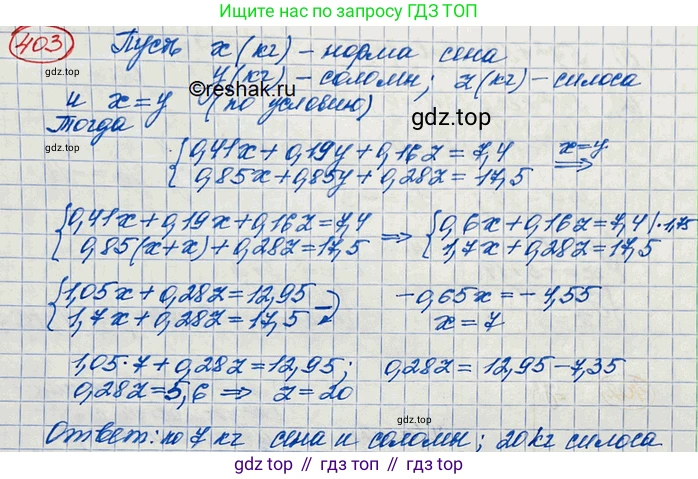 больше по запросу ГДЗ ТОП
403 Пусть x(кг) – норма сена
y(кг) – соломы; z(кг) – силоса
и x=y (по условию)
©reshak.ru
gdz.top
gdz.top
Тогда
{0,41x+0,19y+0,16z=7,4 x=y
0,85x+0,85y+0,28z=17,5 ⇒
{0,41x+0,19x+0,16z=7,4 ⇒ {0,6x+0,16z=7,4 |·1,75
0,85(x+x)+0,28z=17,5 1,7x+0,28z=17,5
{1,05x+0,28z=12,95 –0,65x=–4,55
1,7x+0,28z=17,5 x=7
1,05·7+0,28z=12,95; 0,28z=12,95–7,35
0,28z=5,6 ⇒ z=20
gdz.top
Ответ: по 7 кг сена и соломы; 20кг силоса
gdz.top // гдз.топ // гдз.top